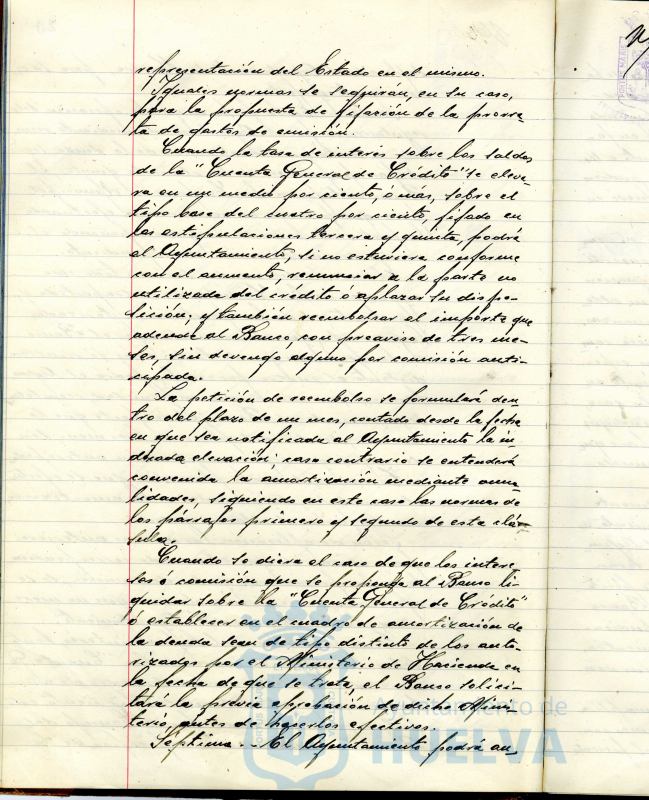 representación del Estado en el mismo.
Iguales normas se seguirán, en su caso,
para la propuesta de fijación de la prorra-
ta de gastos de emisión.
Cuando la tasa de interés sobre los saldos
de la "Cuenta General de Crédito" se eleva-
ra en un medio por ciento, ó más, sobre el
tipo base del cuatro por ciento, fijado en
las estipulaciones tercera y quinta, podrá
el Ayuntamiento, si no estuviera conforme
con el aumento, renunciar a la parte no
utilizada del crédito ó aplazar su dispo-
sición; y también reembolsar el importe que
adeude al Banco, con preaviso de tres me-
ses, sin devengo alguno por comisión anti-
cipada.
La petición de reembolso se formulará den-
tro del plazo de un mes, contado desde la fecha
en que sea notificada al Ayuntamiento la in-
dicada elevación; caso contrario se entenderá
convenida la amortización mediante anua-
lidades, siguiendo en este caso las normas de
los párrafos primero y segundo de esta cláu-
sula.
Cuando se diera el caso de que los intere-
ses ó comisión que se proponga al Banco li-
quidar sobre la "Cuenta General de Crédito"
ó establecer en el cuadro de amortización de
la deuda sean de tipo distinto de los auto-
rizados por el Ministerio de Hacienda en
la fecha de que se trata, el Banco solici-
tará la previa aprobación de dicho Minis-
terio, antes de hacerlos efectivos.
Séptima.- El Ayuntamiento podrá an-
Ayuntamiento de
HUELVA